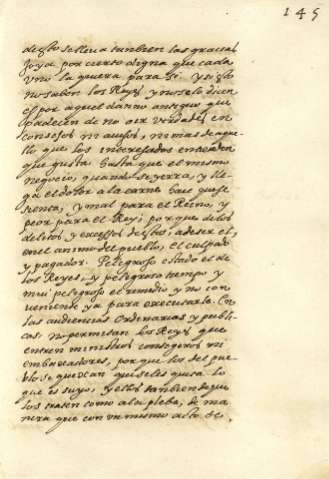 145
desto se lleva tambien las gracias
joya por cierto digna que cada
vno la quiera para si. y si esto
no saben los Reyes, y no se lo dicen
es por aquel danno antiguo que
padecen de no oir verdades en
consejos ni auisos, ni mas de aque
llo que los interesados entienden
que gusta hasta que el mismo
negocio, quando se yerra, y lle
ga el dolor a la carne haze que se
sienta, y mal para el Reino, y
peor para el Rey; porque de los
delitos y excessos destos, a de ser el,
en el animo del pueblo, el culpado
y pagador. Peligroso estado el de
los Reyes, y peligroso tiempo y
mui peligroso el remedio y no con
veniente ya para executarle. En
las audiencias Ordenarias y publi
cas, no permitan los Reyes que
entren ministros consegeros ni
embaxadores, porque los del pue
blo se quexan que se les quita lo
que es suyo, y ellos tambien de que
los traten como a la plebe; de ma
nera que con un mismo acto se